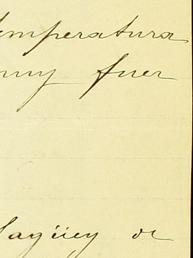 temperatura
muy fuer
agüey de